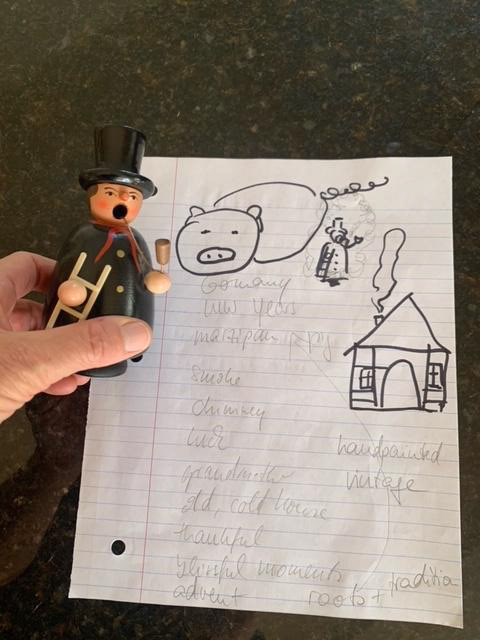 Germany
new years
marzipan pig
smoke
chimney
luck
grandmother
old, cold house
thankful
blissful moments
advent
handpainted
vintage
roots + tradition